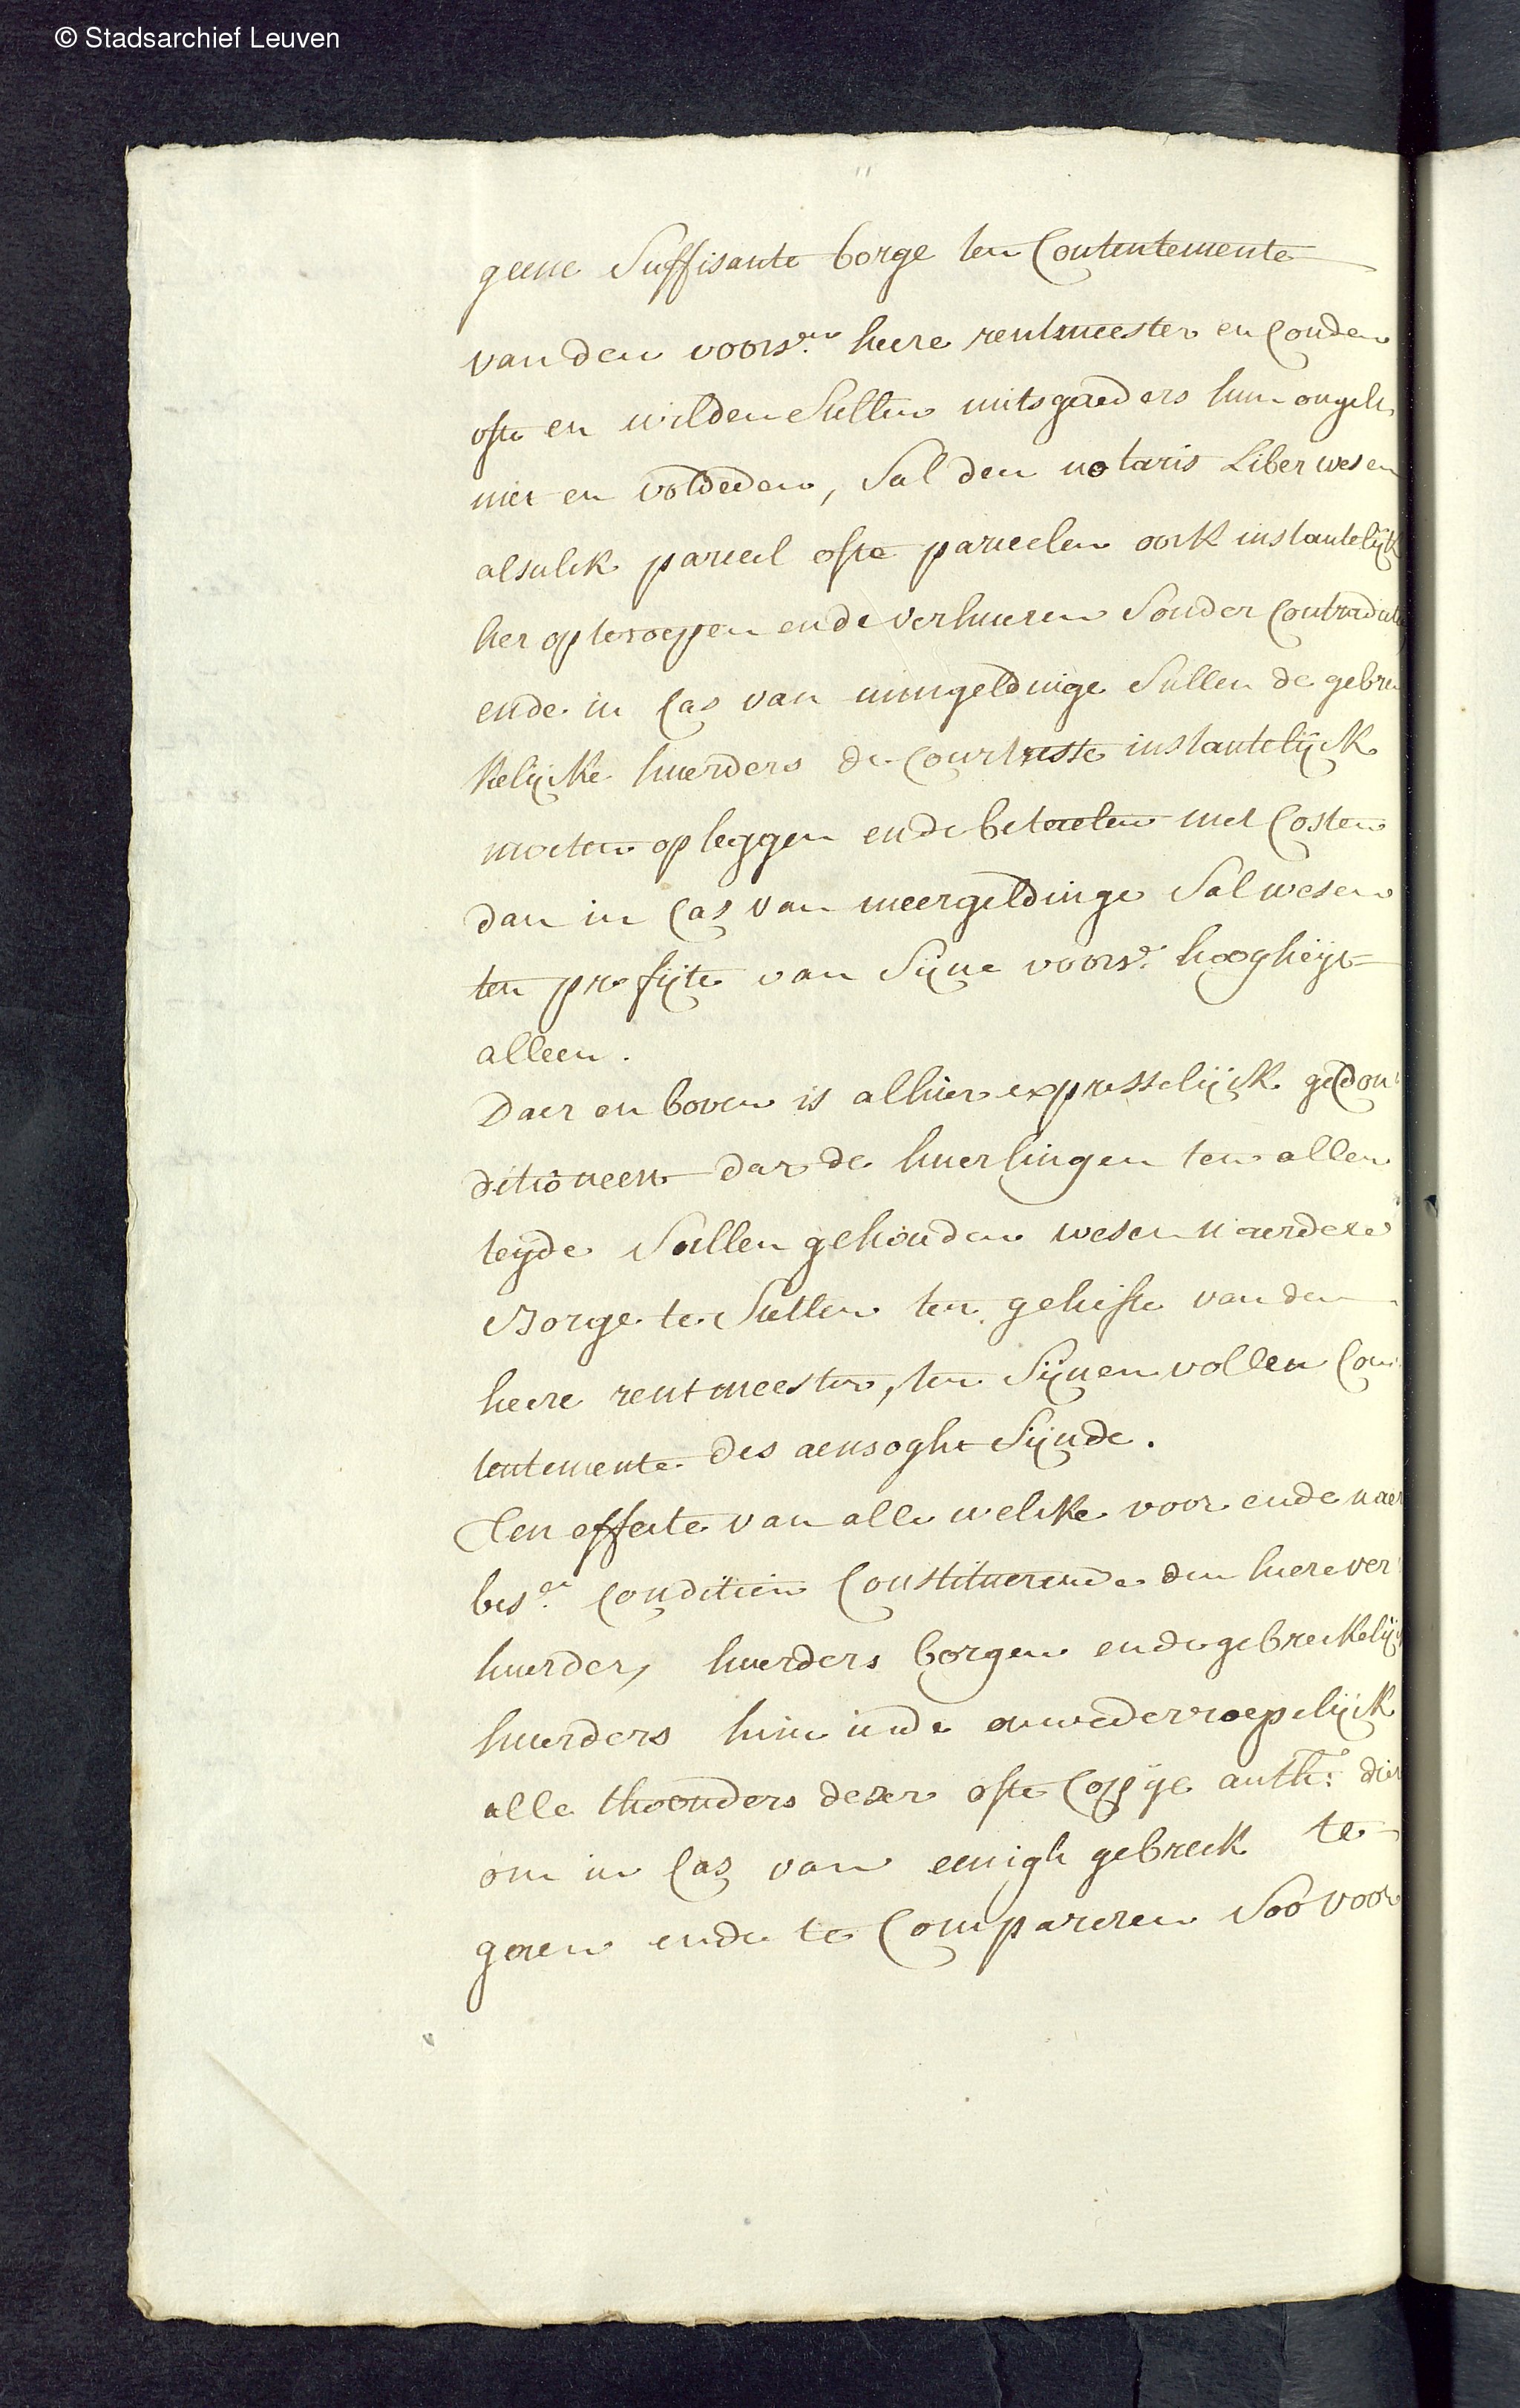 © Stadsarchief Leuven
geene Suffisante borge ten Contentemente
van den voors.en heere rentmeester en Conden
ofte en wilden Stellen mitsgaeders hun ongelt
niet en voldeden, Sal den notaris Liber wesen
alsulck parceel ofte parceelen oock instantelijck
her op te roepen ende verhueren Sonder Contradictie
ende in Cas van mingeldinge Sullen de gebre
kelijcke huerders de Courtresse instantelijck
moeten op leggen ende betaelen met Costen
dan in Cas van meergeldinge Sal wesen
ten profijte van Sijne voors.e hoogheijt
alleen.
Daer en boven is alhier expresselijck gecon
ditioneert dat de huerlingen ten allen
teyde Sullen gehouden wesen naerdere
Borge te Stellen ten geliefte van den
heere rentmeester, ten Sijnen vollen Con
tentemente des aensoght Sijnde.
Ten effecte van alle welcke voor ende naer
bes.en Conditien Constituerende den heere ver
huerder, huerders borgen ende gebreckelijcke
huerders hun inde onwederroepelijck
alle thoonders deser ofte Copije auth: dier
om in Cas van eenigh gebreck te
gaen ende te Compareren Soo voor